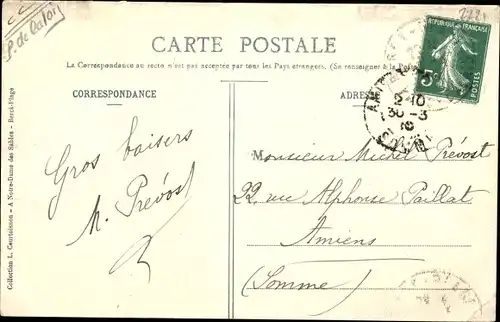 P. de Calais
CARTE POSTALE
La Correspondance au recto n'est pas acceptée par tous les Pays étrangers. (Se renseigner à la Poste)
CORRESPONDANCE
ADRES
REPUBLIQUE FRANÇAISE
POSTES
5
2-10
30-3
10
Gros baisers
M. Prévost
Monsieur Michel Prévost
22, rue Alphonse Paillat
Amiens
(Somme)
Collection L. Courtoisnon - A Notre-Dame des Sables - Berck-Plage